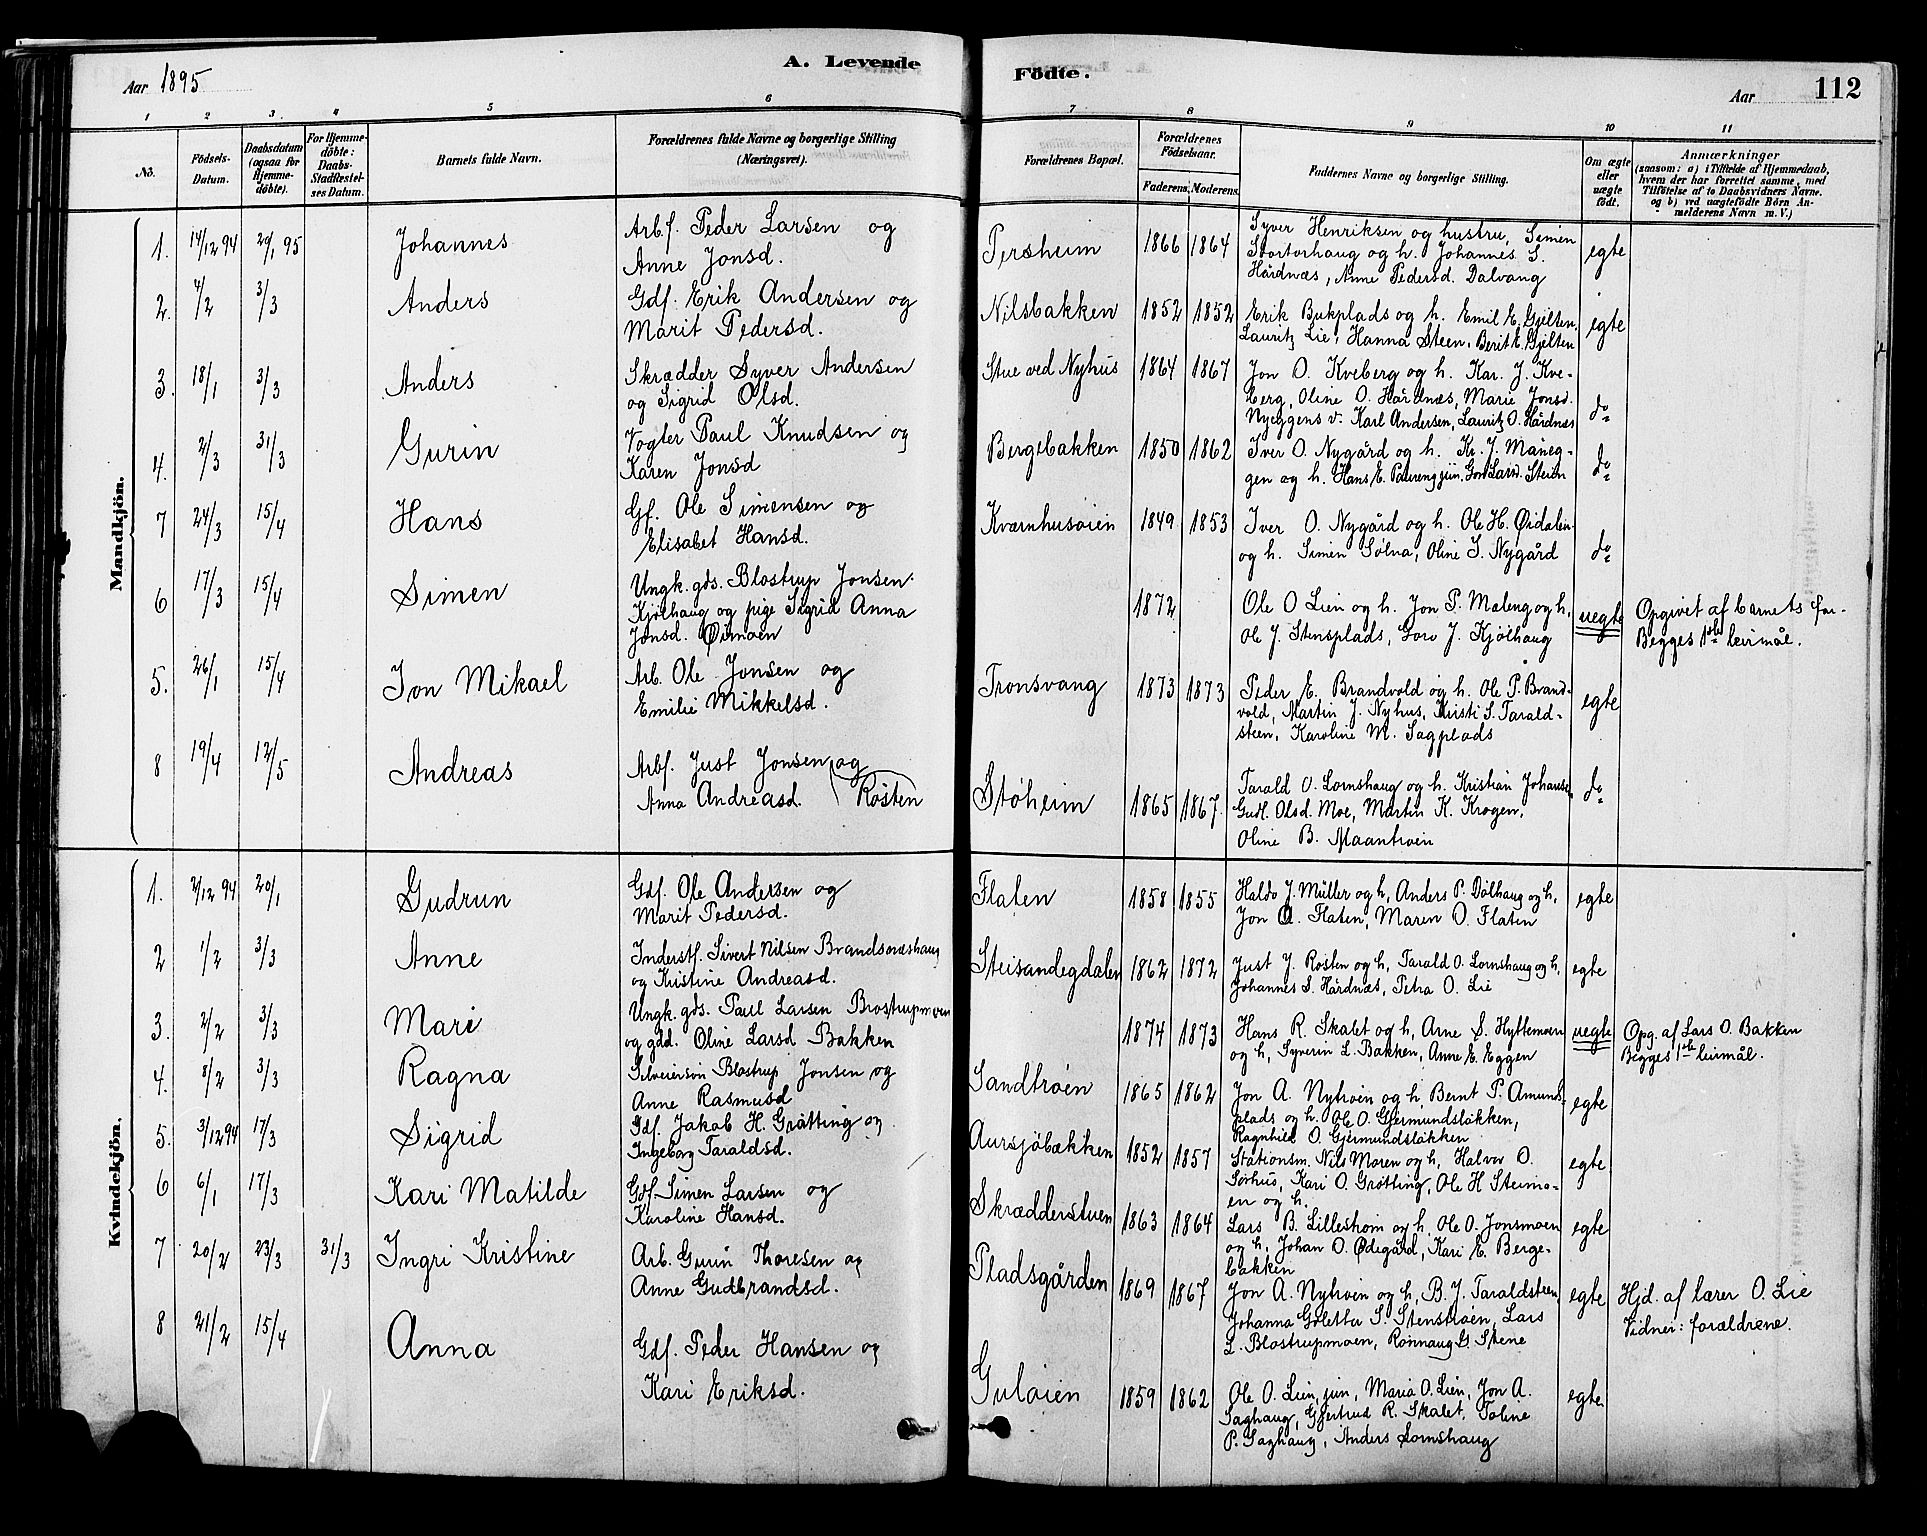 Aar 1895
A. Levende
Födte.
Aar
112
1 2 3 4 5 6 7 8 9 10 11
No.
Födsels-
Datum.
Daabsdatum
(ogsaa for
Hjemme-
döbte).
For Hjemme-
döbte:
Daabs-
Stadfæstel-
ses Datum.
Barnets fulde Navn.
Forældrenes fulde Navne og borgerlige Stilling
(Næringsvei).
Forældrenes Bopæl.
Forældrenes
Födselsaar.
Faderens. Moderens.
Faddernes Navne og borgerlige Stilling.
Om ægte
eller
uægte
födt.
Anmærkninger
(saasom: a) i Tilfælde af Hjemmedaab,
hvem der har forrettet samme, med
Tilföielse af to Daabsvidners Navne.
og b) ved uægtefödte Börn An-
melderens Navn m. V.)
Mandkjön.
1. 14/12 94 20/1 95 Johannes
Arbf. Peder Larsen og
Anne Jonsd.
Persheim 1866 1864
Syver Henriksen og hustru, Simen
Stortorhaug og h. Johannes S.
Hårdnæs, Anne Pedersd. Dalvang
egte
2. 4/2 3/3 Anders
Gdf. Erik Andersen og
Marit Pedersd.
Nilsbakken 1852 1852
Erik Bukplads og h. Emil E. Gjelten,
Lauritz Lie, Hanna Steen, Berit E. Gjelten
egte
3. 18/1 3/3 Anders
Skrædder Syver Andersen
og Sigrid Olsd.
Stue ved Nyhus 1864 1867
Jon O. Kveberg og h. Kar. J. Kve-
berg, Oline O. Hårdnæs, Marie Jonsd.
Nyeggens v. Karl Andersen, Lauritz O. Hårdnæs
do
4. 2/3 31/3 Gurin
Vogter Paul Knudsen og
Karen Jonsd
Bergebakken 1850 1862
Iver O. Nygård og h. Kr. J. Måneg-
gen og h. Hans E. Paureng jun. Gor Larsd. Steien
do
7 24/3 15/4 Hans
Gf. Ole Simensen og
Elisabet Hansd.
Kværnhusøien 1849 1853
Iver O. Nygård og h. Ole H. Øidalen
og h. Simen Sølna, Oline I. Nygård
do
6 17/3 15/4 Simen
Ungk. gds. Blostrup Jonsen
Kjølhaug og pige Sigrid Anna
Jonsd. Øimoen
1872
Ole O Lien og h. Jon P. Måleng og h,
Ole J. Stensplads, Goro J. Kjølhaug
uegte
Opgivet af barnets far.
Begges 1ste leirmål.
5. 26/1 15/4 Jon Mikael
Arb. Ole Jonsen og
Emilie Mikkelsd.
Tronsvang 1873 1873
Peder E. Brandvold og h. Ole P. Brand-
vold, Martin J. Nyhus, Kristi S. Tarald-
steen, Karoline M. Sagplads
egte
8 19/4 12/5 Andreas
Arbf. Just Jonsen og
Anna Andreasd. (Røsten
Støheim 1865 1867
Tarald O. Lornshaug og h. Kristian Johanse
Gudl. Olsd. Moe, Martin K. Krogen,
Oline B. Maantrøen
do
Kvindekjön.
1. 2/12 94 20/1 Gudrun
Gdf. Ole Andersen og
Marit Pedersd.
Flaten 1858 1855
Haldo J. Müller og h, Anders P. Dølhaug og h,
Jon O. Flaten, Maren O. Flaten
egte
2 1/2 3/3 Anne
Inderstf. Sivert Nilsen Brandsnæshaug
og Kristine Andreasd.
Steisandegdalen 1862 1872
Just J. Rosten og h, Tarald O. Lornshaug og h,
Johannes S. Hårdnæs, Petra O. Lie
egte
3. 2/2 3/3 Mari
Ungk. gds. Paul Larsen Brostrupmoen
og gdd. Oline Larsd Bakken
1874 1873
Hans R. Skalet og h, Arne S. Hyttemoen
og h, Syverin L. Bakken, Anne E. Eggen
uegte
Opg. af Lars O. Bakken
Begges 1ste leirmål.
4. 8/2 3/3 Ragna
Selveierson Blostrup Jonsen og
Anne Rasmusd
Sandtrøen 1865 1862
Jon A. Nytrøen og h, Bernt P. Amunds-
plads og h. Ole O. Gjermundsløkken,
Ragnhild O. Gjermundsløkken
egte
5. 3/12 94 17/3 Sigrid
Gdf. Jakob H. Grøtting og
Ingeborg Taraldsd.
Aursjöbækken 1852 1857
Stationsm. Nils Moren og h, Halvor O.
Sørhus, Kari O. Grøtting, Ole H Steimo-
en og h.
egte
6 6/1 17/3 Kari Matilde
Gdf. Simen Larsen og
Karoline Hansd.
Skrædderstuen 1863 1864
Lars B. Lilleström og h, Ole O. Jonsmoen
og h, Johan O. Ødegård, Kari E. Berge-
bakken
egte
7 20/2 23/3 31/3 Ingri Kristine
Arb. Gurin Thoresen og
Anne Gudbrandsd.
Pladsgården 1869 1867
Jon A. Nytrøen og h, B. J. Taraldsteen,
Johanna Goletta S. Stenstrøen, Lars
L. Blostrupmoen, Rønnaug G. Stene
egte
Hjd. af lærer O. Lie
Vidner: forældrene.
8 21/2 15/4 Anna
Gdf. Peder Hansen og
Kari Eriksd.
Guløien 1859 1862
Ole O. Lien, jun, Maria O. Lien, Jon A.
Saghaug, Gjertrud R. Skalet, Toline
P. Saghaug, Anders Lornshaug
egte